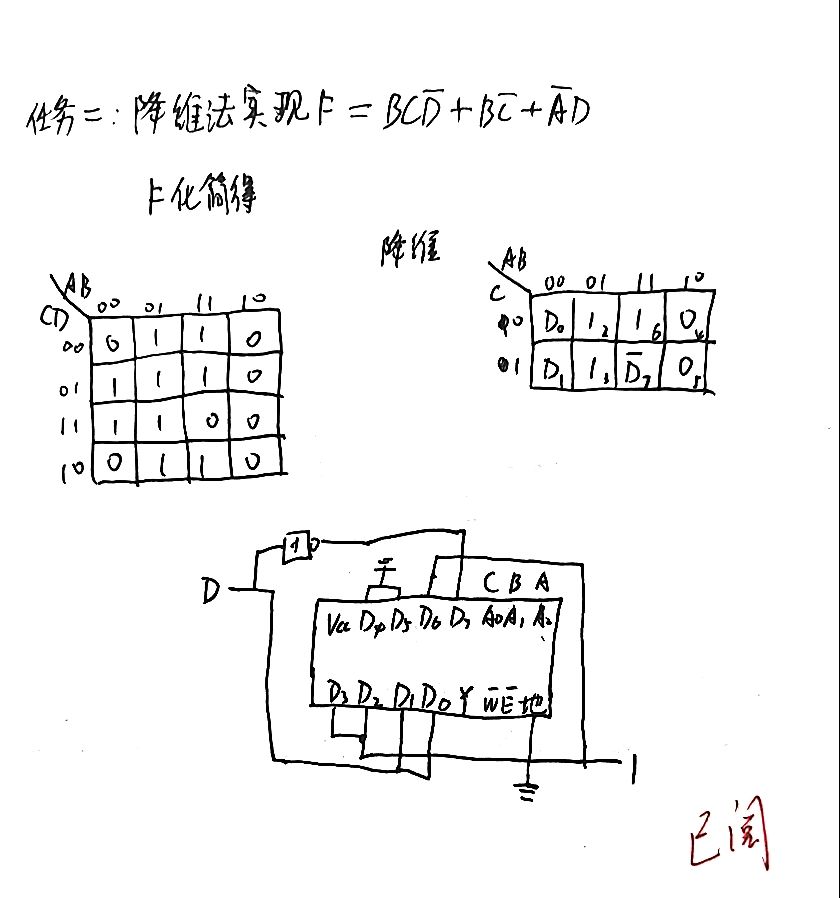 任务二：降维法实现F = BCD̅ + BC̅ + A̅D
F化简得
降维
AB
CD 00 01 11 10
00 0 1 1 0
01 1 1 1 0
11 1 1 0 0
10 0 1 1 0
AB
C 00 01 11 10
00 D₀ 1₂ 1₆ 0₄
01 D₁ 1₃ D̅₇ 0₅
1
D
C B A
Vcc D4 D5 D6 D7 A0 A1 A2
D3 D2 D1 D0 Y W̅ E̅ 地
1
已阅